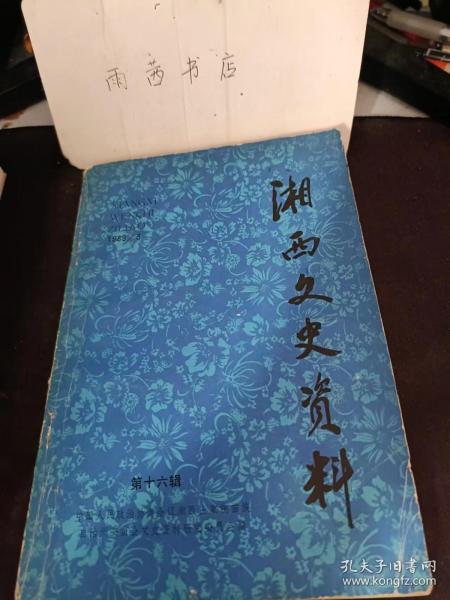 雨茜书店
XIANGXI
WENSHI
ZILIAO
1989·3
湘西文史资料
第十六辑
孔夫子旧书网
www.kongfz.com